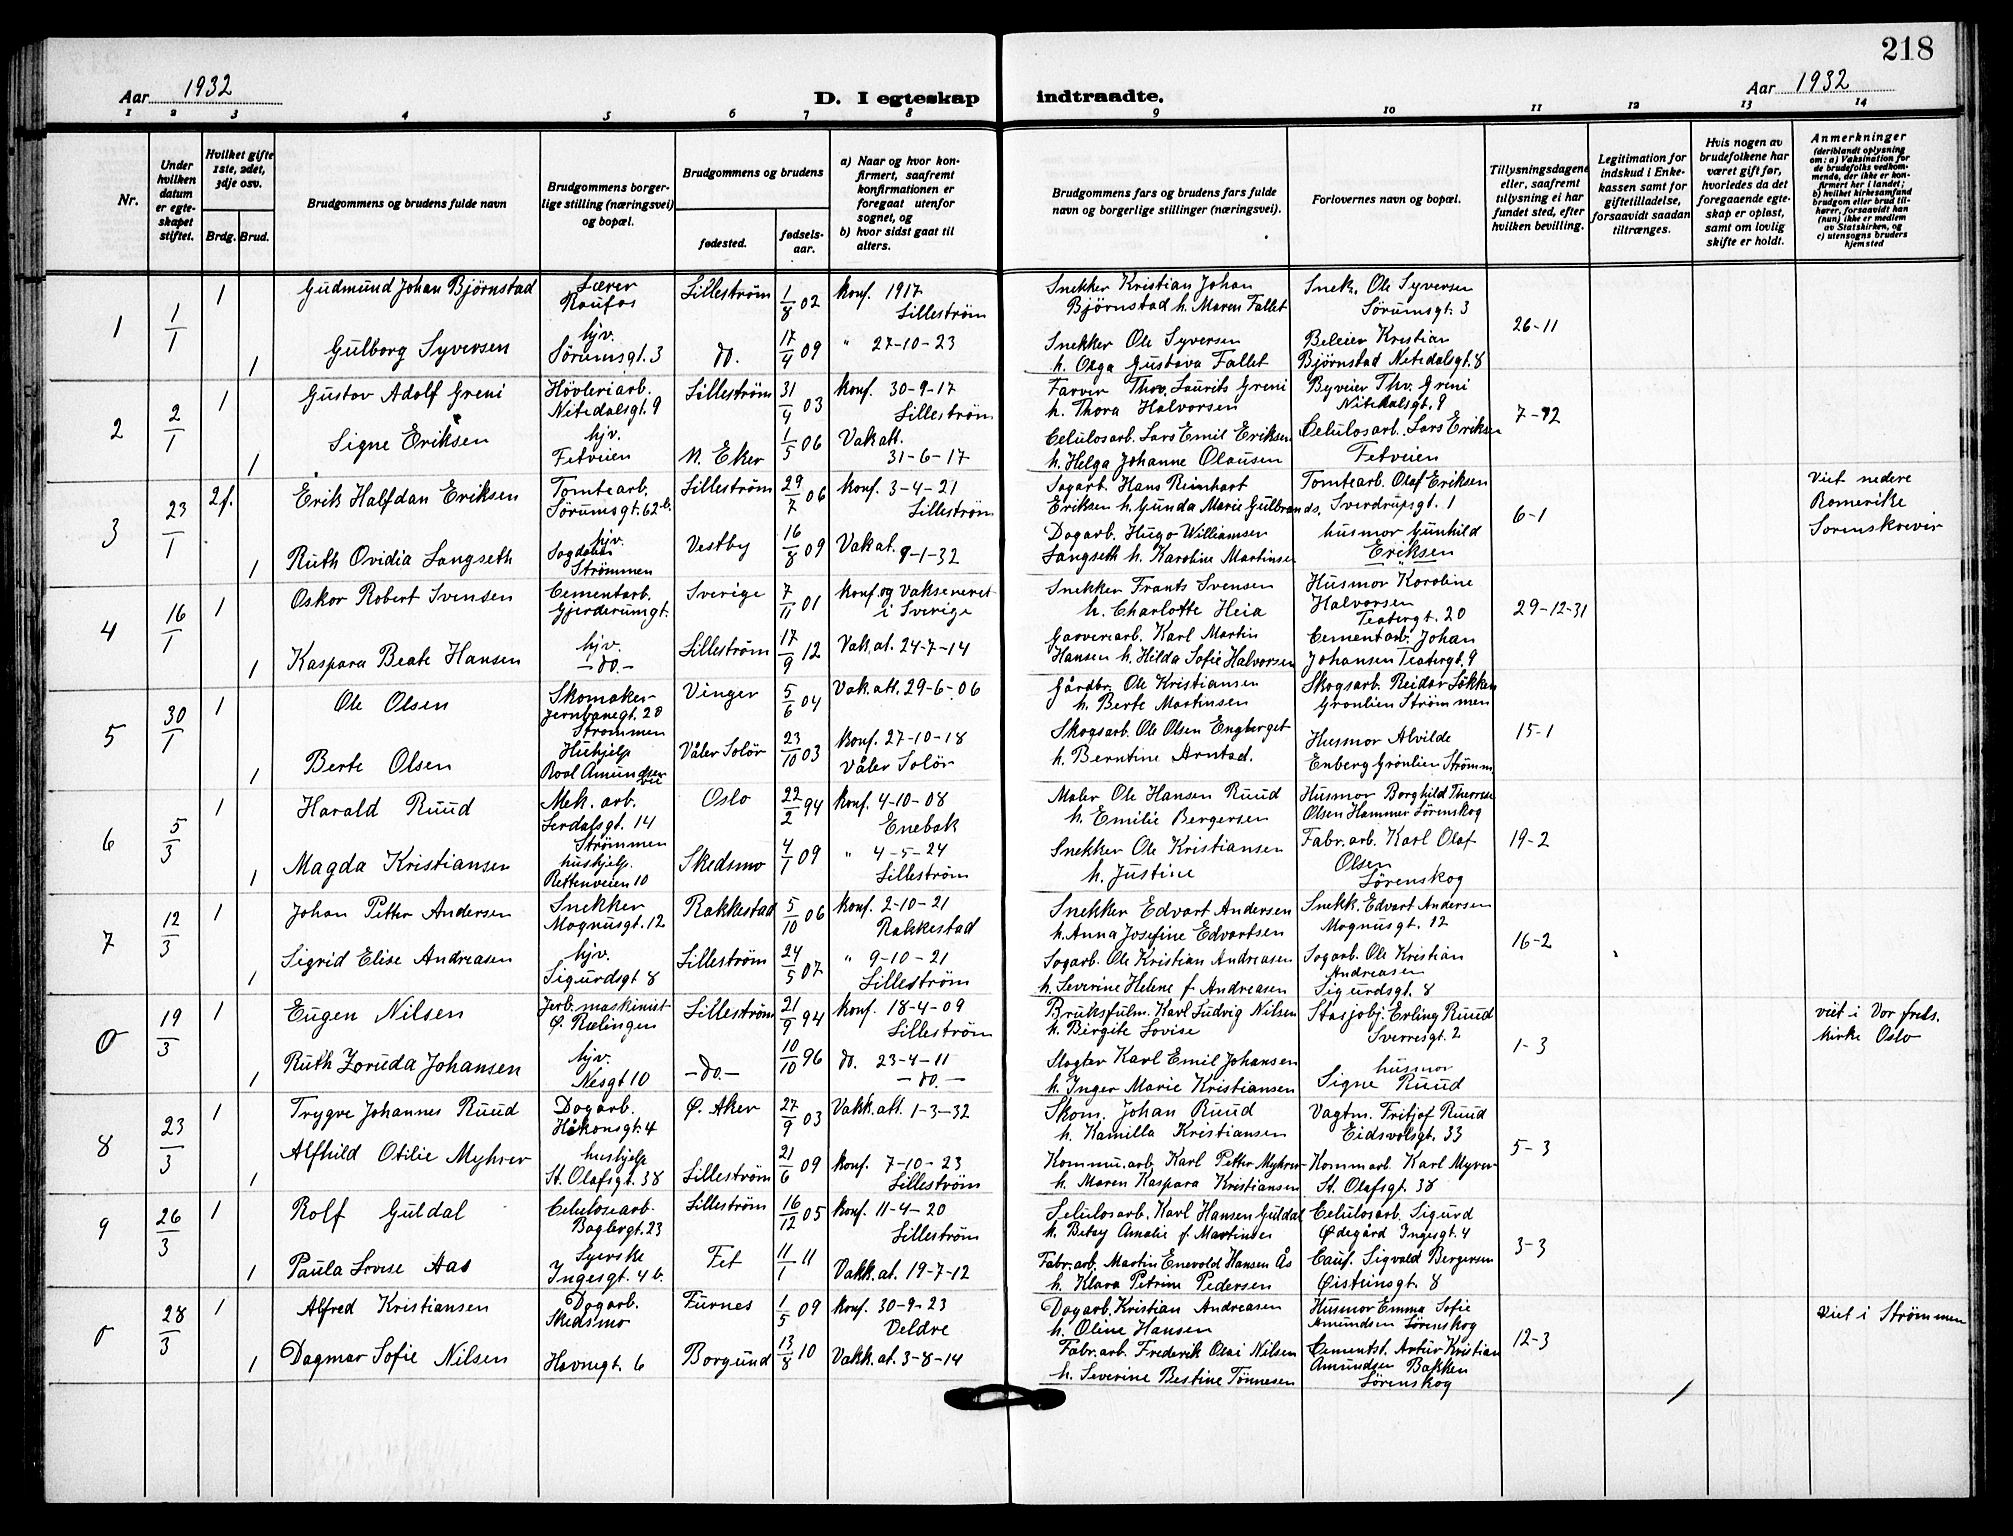 218
Aar 1932
D. I egteskap indtraadte.
Aar 1932
1 2 3 4 5 6 7 8 9 10 11 12 13 14
Nr.
Under hvilken datum er egteskapet stiftet.
Hvilket gifte 1ste, 2det, 3dje osv.
Brdg. Brud.
Brudgommens og brudens fulde navn
Brudgommens borgerlige stilling (næringsvei) og bopæl.
Brudgommens og brudens
fødested.
fødselsaar.
a) Naar og hvor konfirmert, saafremt konfirmationen er foregaat utenfor sognet, og
b) hvor sidst gaat til alters.
Brudgommens fars og brudens fars fulde navn og borgerlige stillinger (næringsvei).
Forlovernes navn og bopæl.
Tillysningsdagene eller, saafremt tillysning ei har fundet sted, efter hvilken bevilling.
Legitimation for indskud i Enkekassen samt for giftetilladelse, forsaavidt saadan tiltrænges.
Hvis nogen av brudefolkene har været gift før, hvorledes da det foregaaende egteskap er opløst, samt om lovlig skifte er holdt.
Anmerkninger (deriblandt oplysning om: a) Vaksination for de brudefolks vedkommende, der ikke er konfirmert her i landet; b) hvilket kirkesamfund brudgom eller brud tilhører, forsaavidt han (hun) ikke er medlem av Statskirken, og c) utensogns bruders hjemsted
1 1/1 1 Gudmund Johan Bjørnstad Lærer Raufos Lilleström 1/8 02 konf. 1917 Lilleström Snekker Kristian Johan Bjørnstad h. Maren Fallet Snek. Ole Syversen Sørumsgt. 3 26-11
1 Gulborg Syversen hjv. Sørumsgt. 3 do. 17/4 09 " 27-10-23 Snekker Ole Syversen h. Olga Gustava Fallet Kristian Bjørnstad Nitedalsgt. 8
2 2/1 1 Gustav Adolf Greni Høvleriarb. Nitedalsgt. 9 Lilleström 31/4 03 konf. 30-9-17 Lilleström Farver Thov. Laurits Greni h. Thora Halvorsen Thv. Greni Nitedalsgt. 9 7-12
1 Signe Eriksen hjv. Fetveien N. Eker 1/5 06 Vak att. 31-6-17 Celulosarb. Lars Emil Eriksen h. Helga Johanne Olausen Celulosarb. Lars Eriksen Fetveien
3 23/1 2f. Erik Halfdan Eriksen Tomtearb. Sørumsgt. 62 b. Lilleström 29/7 06 konf. 3-4-21 Lilleström Sagarb. Hans Reinhart Eriksen h. Gunda Marie Gulbrands. Tomtearb. Olaf Eriksen Sverdrupsgt. 1 6-1 Viet nedre Romerike Sorenskriver
1 Ruth Ovidia Langseth hjv. Sagdalen Strømmen Vestby 16/8 09 Vak at. 9-1-32 Dagarb. Hugo Williamsen Langseth h. Karoline Martinsen husmor Gunhild Eriksen
4 16/1 1 Oskar Robert Svensen Cementarb. Gjerderumgt. Sverige 7/11 01 konf. og vakseneret i Sverige Snekker Frants Svensen h. Charlotte Heia Husmor Karoline Halvorsen Teatergt. 20 29-12-31
1 Kaspara Beate Hansen hjv. -do.- Lilleström 17/9 12 Vak. at. 24-7-14 Garveriarb. Karl Martin Hansen h. Hilda Sofie Halvorsen Cementarb. Johan Johansen Teatergt. 9
5 30/1 1 Ole Olsen Skomaker Jernbanegt. 20 Strømmen Vinger 5/6 04 Vak att. 29-6-06 Gårdbr. Ole Kristiansen h. Berte Martinsen Skogsarb. Reidar Løkken Grønlien Strømmen 15-1
1 Berte Olsen Hushjelp Roal Amundsen vei Våler Solør 23/10 03 konf. 27-10-18 Våler Solør Skogsarb. Ole Olsen Engberget h. Berntine Arntsd. Husmor Alvilde Enberg Grønlien Strømm.
6 5/3 1 Harald Ruud Mek. arb. Lerdalsgt. 14 Strømmen Oslo 22/2 94 konf. 4-10-08 Enebak Maler Ole Hansen Ruud h. Emilie Bergersen Husmor Borghild Therese Olsen Hammer Lörenskog 19-2
1 Magda Kristiansen hushjelp. Rettenveien 10 Skedsmo 4/1 09 " 4-5-24 Lilleström Snekker Ole Kristiansen h. Justine Fabr. arb. Karl Olaf Olsen Lörenskog
7 12/3 1 Johan Petter Andersen Snekker Magnusgt. 12 Rakkestad 5/10 06 konf. 2-10-21 Rakkestad Snekker Edvart Andersen h. Anna Josefine Edvartsen Snekk. Edvart Andersen Magnusgt. 12 16-2
1 Sigrid Elise Andreasen hjv. Sigurdsgt 8 Lilleström 24/5 07 " 9-10-21 Lilleström Sagarb. Ole Kristian Andreasen h. Severine Helene f. Andreasen Sagarb. Ole Kristian Andreasen Sigurdsgt. 8
0 19/3 1 Eugen Nilsen Jerb. maskinist Ø. Rælingen Lilleström 21/9 94 konf. 18-4-09 Lilleström Bruksfulm. Karl Ludvig Nilsen h. Birgite Lovise Stasjobj. Erling Ruud Sverresgt. 2 1-3 viet i Vor frels. kirke Oslo
1 Ruth Zoruda Johansen hjv. Nesgt 10 -do.- 10/10 96 do. 23-4-11 -do.- Slagter Karl Emil Johansen h. Inger Marie Kristiansen husmor Signe Ruud
8 23/3 1 Trygve Johannes Ruud Dagarb. Håkonsgt. 4 Ø. Aker 27/9 03 Vakk. att. 1-3-32 Skom. Johan Ruud h. Kamilla Kristiansen Vagtm. Fritjof Ruud Eidsvolsgt. 33 5-3
1 Alfhild Otilie Myhrer hushjelp St. Olafsgt. 38 Lilleström 21/6 09 konf. 7-10-23 Lilleström Kommu. arb. Karl Petter Myhrer h. Maren Kaspara Kristiansen Komm arb. Karl Myrer St. Olafsgt. 38
9 26/3 1 Rolf Guldal Celulosearb. Baglergt. 23 Lilleström 16/12 05 konf. 11-4-20 Lilleström Selulosarb. Karl Hansen Guldal h. Betsy Amalie f. Martinsen Celulosarb. Sigurd Ødegård Ingesgt. 4 3-3
1 Paula Lovise Aas Syerske Ingesgt. 4 b. Fet 11/1 11 Vakk. at. 19-7-12 Fabr. arb. Martin Enevold Hansen Ås h. Klara Petrine Pedersen Sigvald Bergersen Øistensgt. 8
0 28/3 1 Alfred Kristiansen Dagarb. Skedsmo Furnes 1/5 09 konf. 30-9-23 Veldre Dagarb. Kristian Andreasen h. Oline Hansen Husmor Emma Sofie Amundsen Lörenskog 12-3 Viet i Strømmen
1 Dagmar Sofie Nilsen Havnegt. 6 Borgund 13/8 10 Vakk. at. 3-8-14 Fabr. arb. Frederik Olai Nilsen h. Severine Bestine Tønnesen Cementst. Artur Kristian Amundsen Bakken Lörenskog